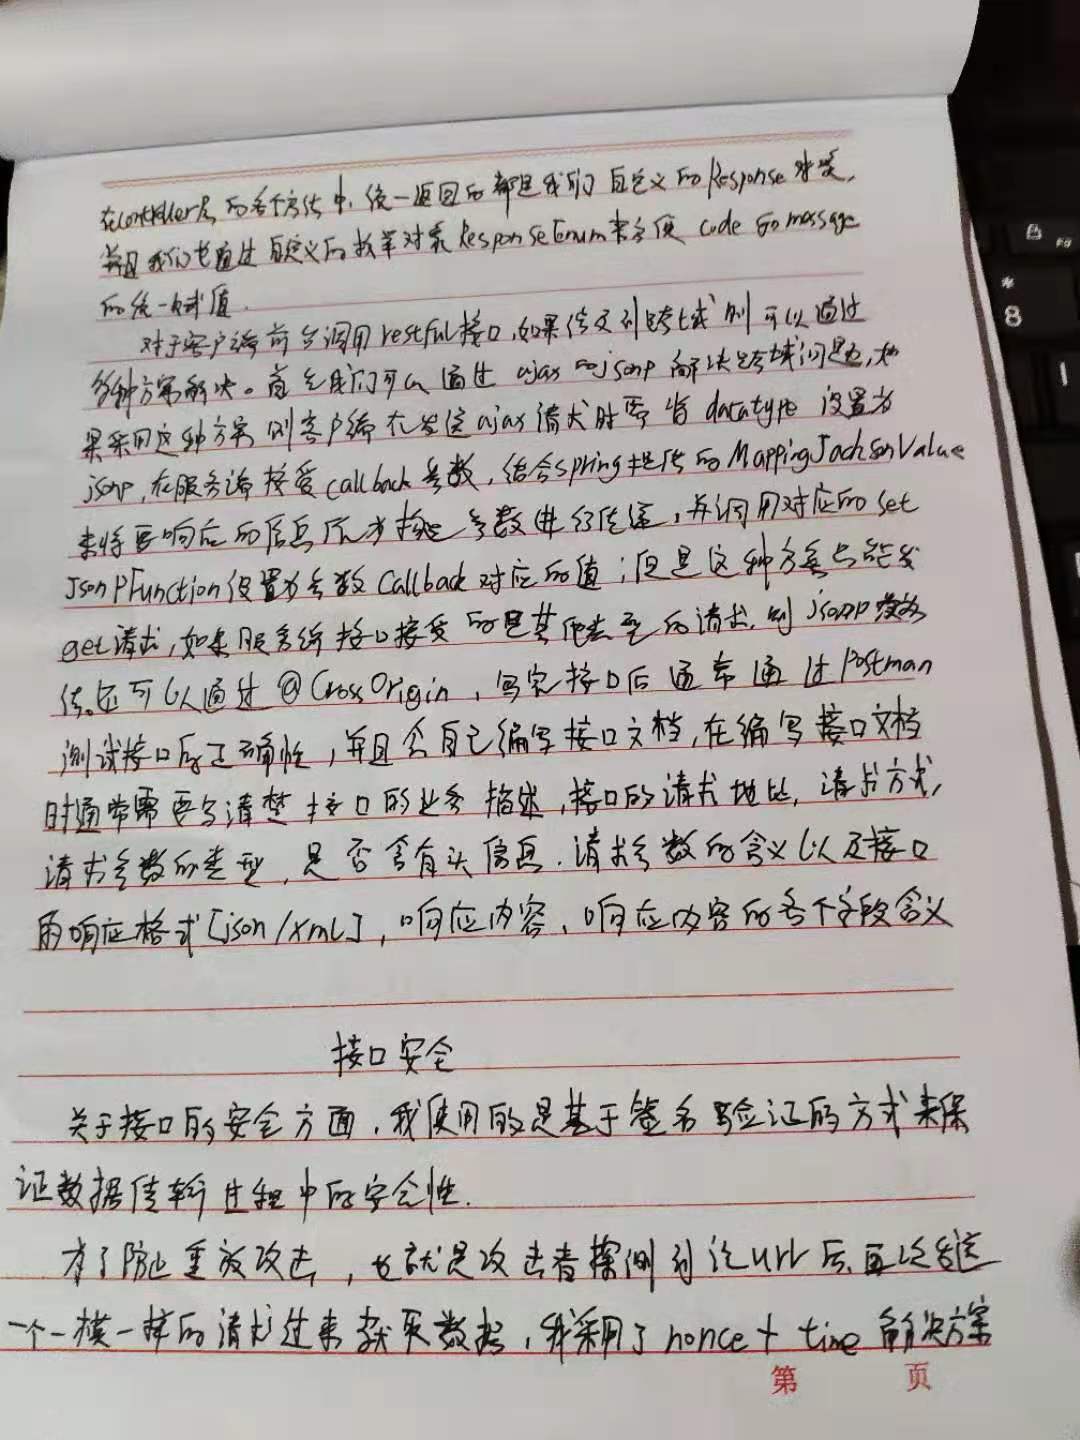 在controller层的各个方法中,统一返回的都是我们自定义的Response对象,
并且我们也通过自定义的枚举对象ResponseEnum来方便code和message
的统一赋值.
对于客户端前台调用restful接口,如果涉及到跨域则可以通过
多种方案解决。首先我们可以通过ajax的jsonp解决跨域问题,如
果采用这种方案则客户端在发送ajax请求时需将datatype设置为
jsonp,在服务端接受callback参数,结合spring提供的MappingJacksonValue
来将要响应的信息作为构造参数进行传递,并调用对应的set
JsonPFunction设置为参数Callback对应的值;但是这种方案只能发
get请求,如果服务端接口接受的是其他类型的请求.则jsonp
还可以通过@CrossOrigin,写完接口后通常通过Postman
测试接口的正确性,并且会自己编写接口文档,在编写接口文档
时通常需要写清楚接口的业务描述,接口的请求地址,请求方式,
请求参数的类型,是否含有头信息.请求参数的含义以及接口
的响应格式[json/xml],响应内容、响应内容的各个字段含义
接口安全
关于接口的安全方面.我使用的是基于签名验证的方式来保
证数据传输过程中的安全性.
为了防止重放攻击,也就是攻击者探测到该url后,再次发送
一个一模一样的请求过来获取数据,我采用了nonce+time解决方案
第 页